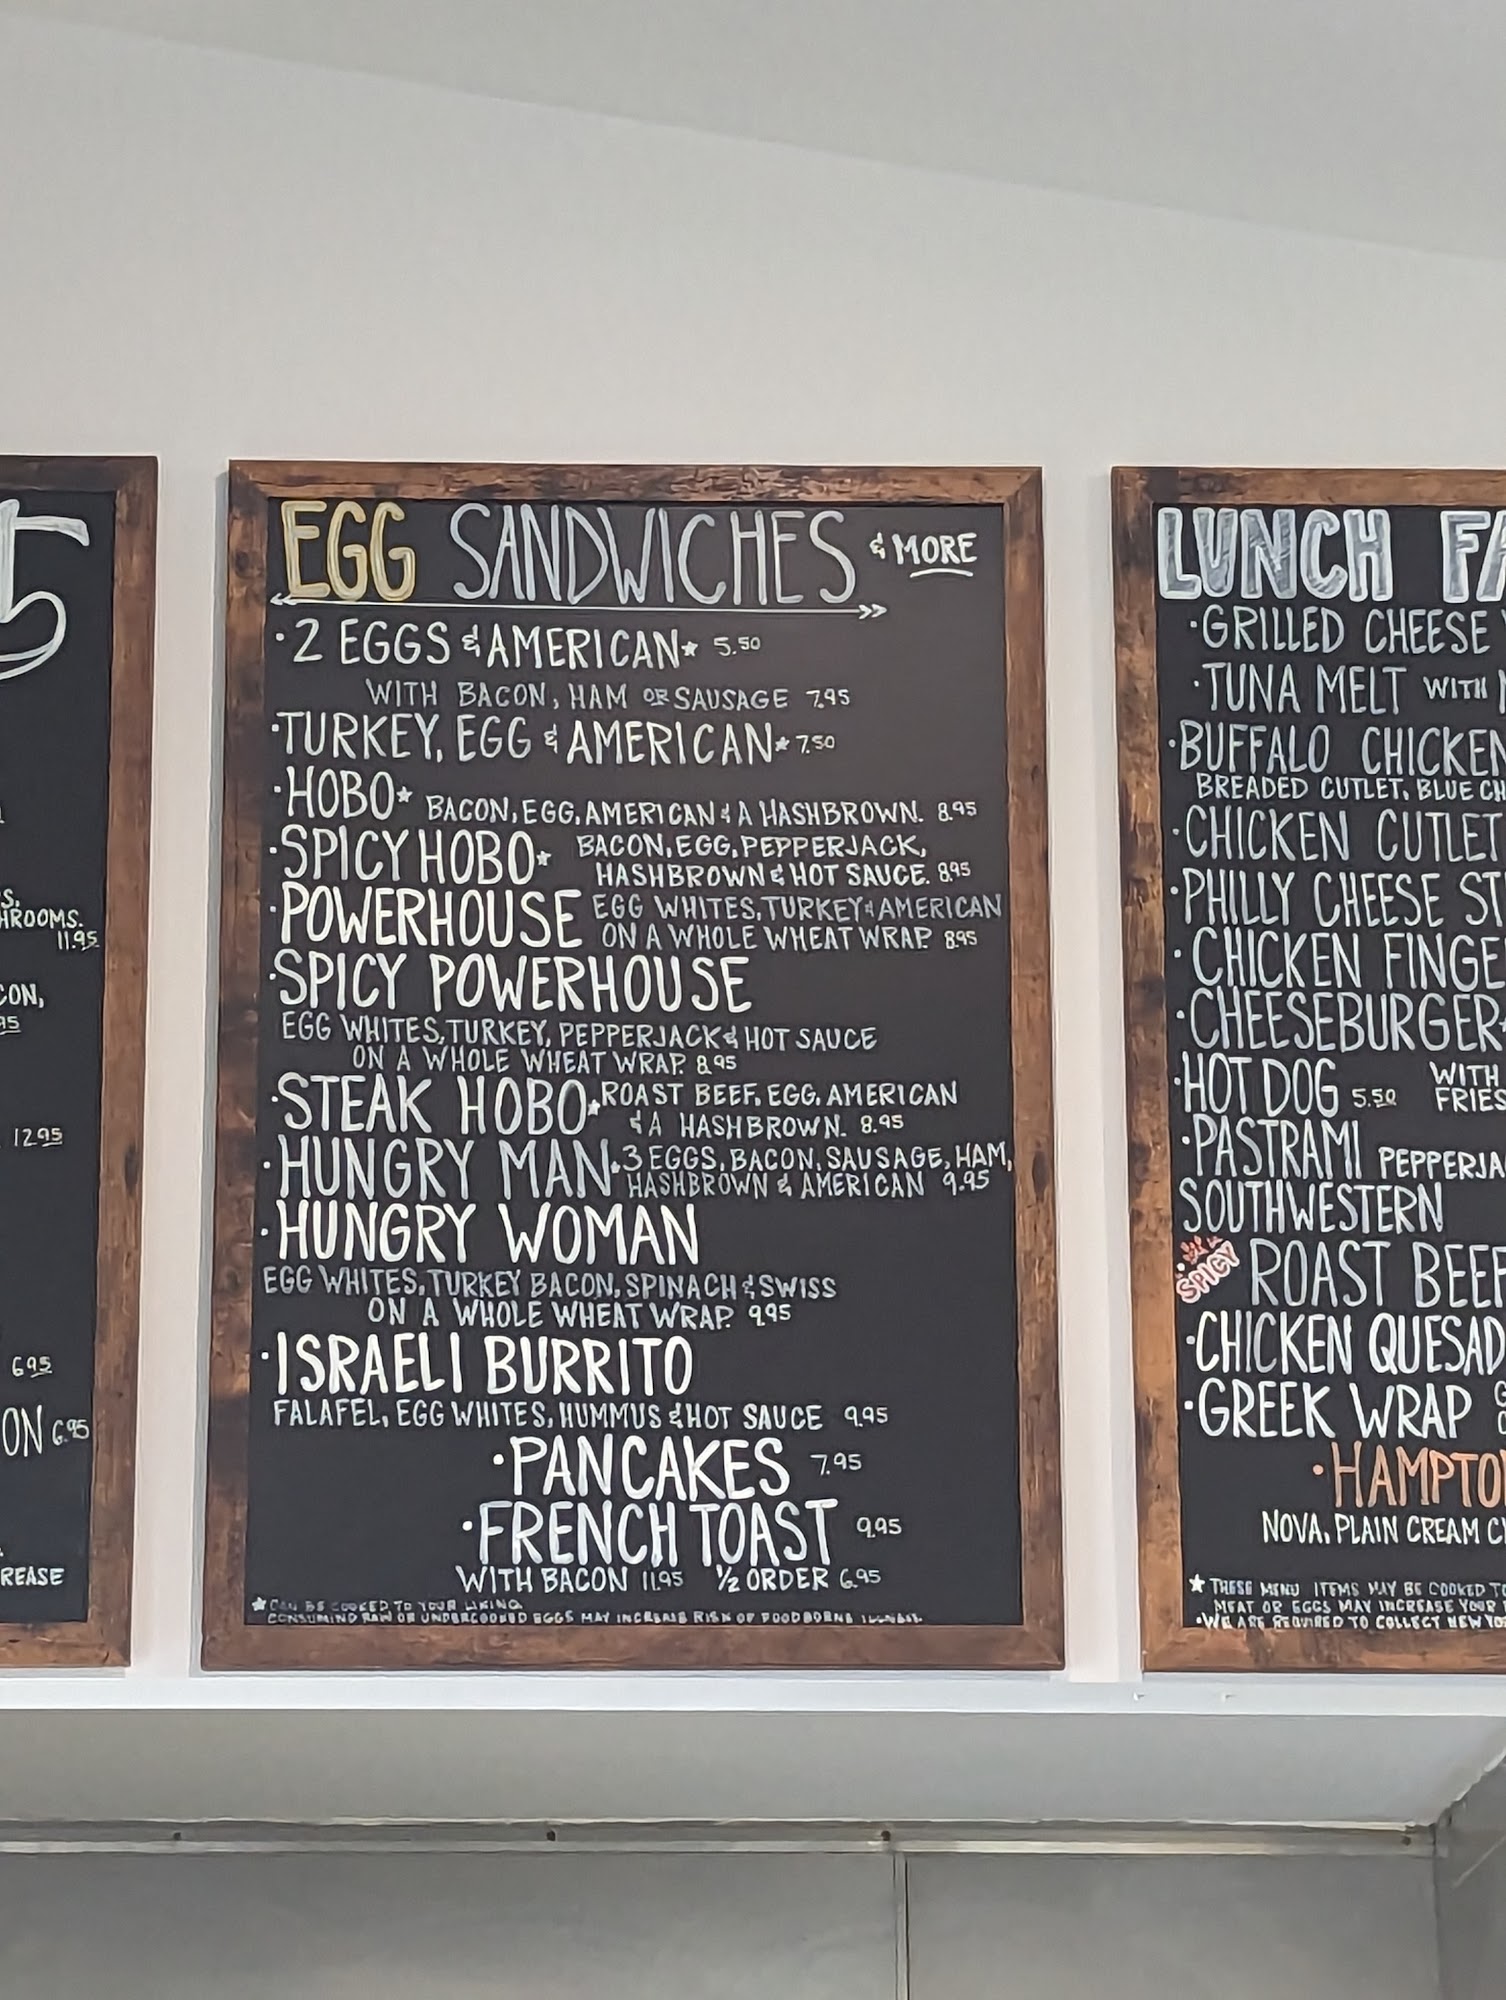 S.
HROOMS.
11.95
CON,
95
12.95
6.95
ON 6.95
REASE
EGG SANDWICHES & MORE
·2 EGGS & AMERICAN* 5.50
WITH BACON, HAM OR SAUSAGE 7.95
·TURKEY, EGG & AMERICAN* 7.50
·HOBO* BACON, EGG, AMERICAN & A HASHBROWN. 8.95
·SPICY HOBO* BACON, EGG, PEPPERJACK,
HASHBROWN & HOT SAUCE. 8.95
·POWERHOUSE EGG WHITES, TURKEY & AMERICAN
ON A WHOLE WHEAT WRAP. 8.95
·SPICY POWERHOUSE
EGG WHITES, TURKEY, PEPPERJACK & HOT SAUCE
ON A WHOLE WHEAT WRAP. 8.95
·STEAK HOBO* ROAST BEEF, EGG, AMERICAN
& A HASHBROWN. 8.95
·HUNGRY MAN* 3 EGGS, BACON, SAUSAGE, HAM,
HASHBROWN & AMERICAN 9.95
·HUNGRY WOMAN
EGG WHITES, TURKEY BACON, SPINACH & SWISS
ON A WHOLE WHEAT WRAP. 9.95
·ISRAELI BURRITO
FALAFEL, EGG WHITES, HUMMUS & HOT SAUCE 9.95
·PANCAKES 7.95
·FRENCH TOAST 9.95
WITH BACON 11.95 ½ ORDER 6.95
*CAN BE COOKED TO YOUR LIKING.
CONSUMING RAW OR UNDERCOOKED EGGS MAY INCREASE RISK OF FOODBORNE ILLNESS.
LUNCH FA
·GRILLED CHEESE
·TUNA MELT WITH
·BUFFALO CHICKEN
BREADED CUTLET, BLUE CH
·CHICKEN CUTLET
·PHILLY CHEESE ST
·CHICKEN FINGE
·CHEESEBURGER*
·HOT DOG 5.50 WITH
FRIES
·PASTRAMI PEPPERJA
SOUTHWESTERN
SPICY ROAST BEEF
·CHICKEN QUESAD
·GREEK WRAP
·HAMPTO
NOVA, PLAIN CREAM C
*THESE MENU ITEMS MAY BE COOKED TO
MEAT OR EGGS MAY INCREASE YOUR
·WE ARE REQUIRED TO COLLECT NEW YO